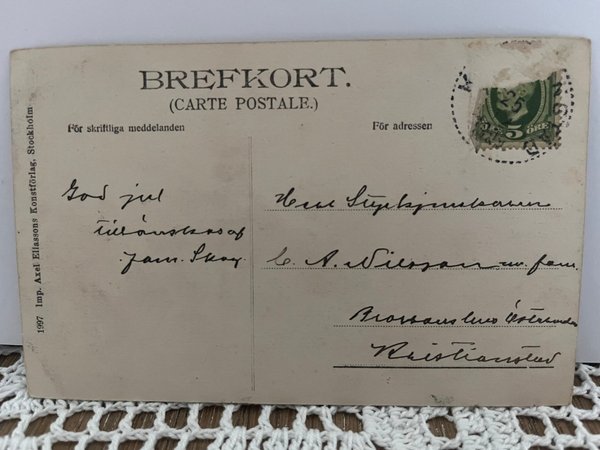 BREFKORT.
(CARTE POSTALE.)
För skriftliga meddelanden
För adressen
5 ÖRE
25
God jul
tillönskas af
fam. Skog.
Herr
C. A. Nilsson m. fam.
Kristianstad
1997 Imp. Axel Eliassons Konstförlag, Stockholm